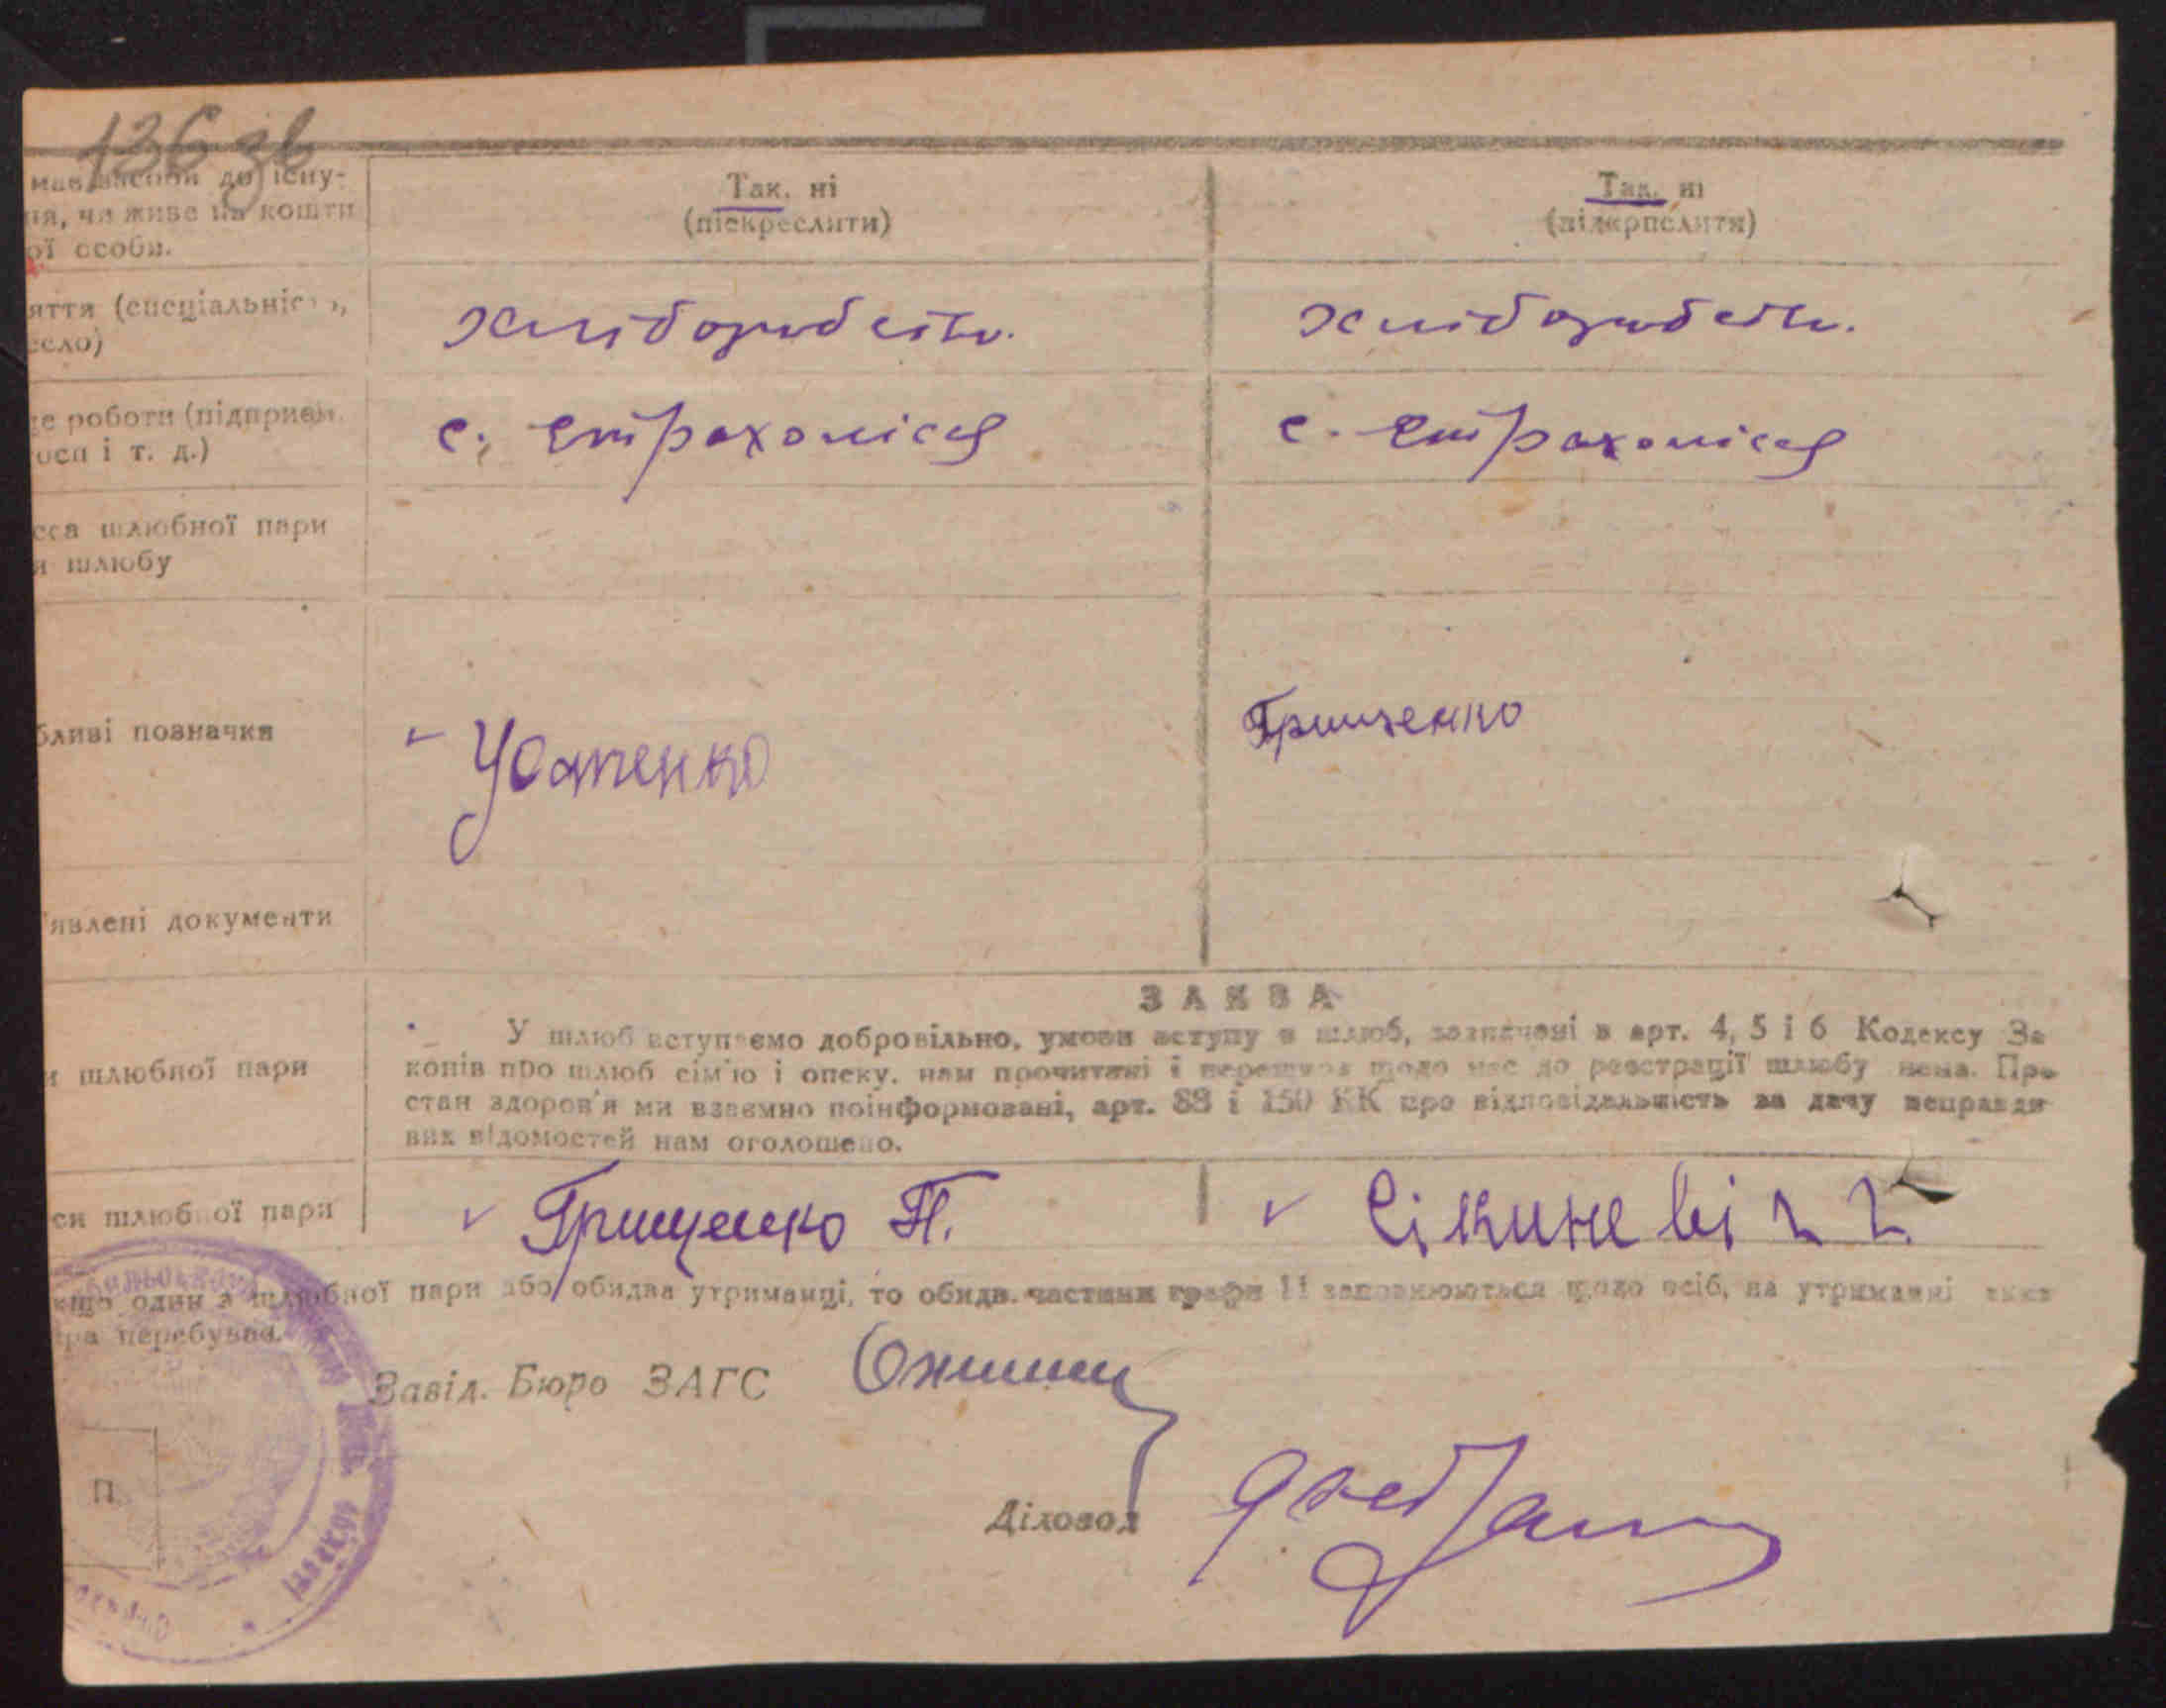 136 зв
має засоби до існу-
ня, чи живе на кошти
ої особи.
Так, ні
(піскреслити)
Так, ні
(підкрпслити)
яття (спеціальніс
есло)
хліборобств.
хліборобств.
це роботи (підприєм.
і т. д.)
с. Страхолісся
с. Страхолісся
шлюбної пари
я шлюбу
бливі позначки
Усатенко
Грищенко
'явлені документи
ЗАЯВА
У шлюб вступаємо добровільно, умови вступу в шлюб, зазначені в арт. 4, 5 і 6 Кодексу За
конів про шлюб сім'ю і опеку, нам прочитані і перешкод щодо нас до реєстрації шлюбу нема. Про
и шлюбної пари
стан здоров'я ми взаємно поінформовані, арт. 88 і 150 КК про відповідальність за дачу неправди
вих відомостей нам оголошено.
си шлюбної пари
Грищенко П.
кщо один з шлюбної пари або обидва утриманці, то обидв. частини графи 11 заповнюються щодо осіб, на утриманні яких
ра перебуває.
Завід. Бюро ЗАГС
П.
Діловод